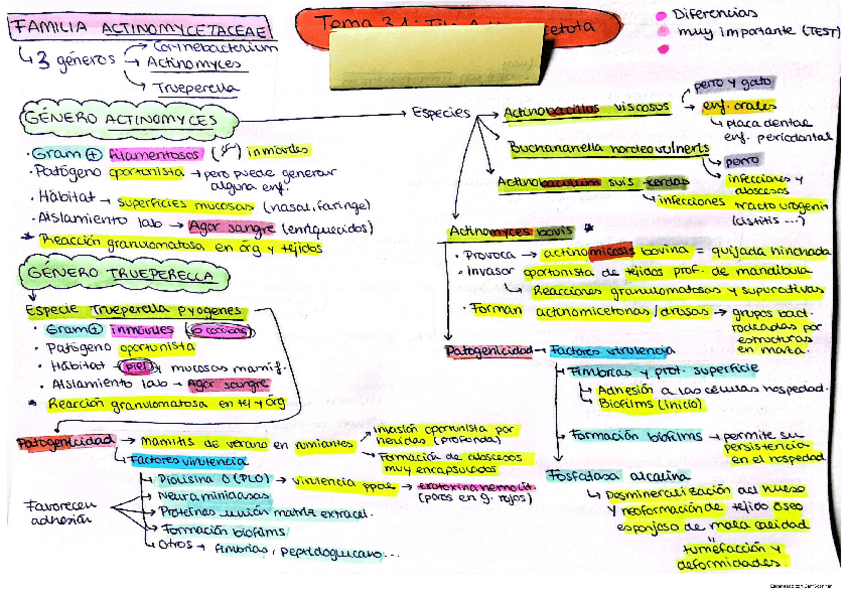 FAMILIA ACTINOMYCETACEAE
↳ 3 géneros
→ Corynebacterium
→ Actinomyces
→ Trueperella
Tema 31:
Diferencias
muy importante (TEST)
GÉNERO ACTINOMYCES
· Gram + filamentosos inmóviles
· Patógeno oportunista → pero puede generar
alguna enf.
· Hábitat → superficies mucosas (nasal, faringe)
· Aislamiento lab → Agar sangre (enriquecidos)
* Reacción granulomatosa en órg y tejidos
Especies
Actinobacillus viscosus
perro y gato
enf. orales
↳ placa dental
enf. periodontal
Buchananella hordeovulneris
→ perro
↳ infecciones y
abscesos
Actinobaculum suis cerdas
↳ infecciones tracto urogenin
(cistitis ...)
Actinomyces bovis *
· Provoca → actinomicosis bovina = quijada hinchada
· Invasor oportunista de tejidos prof. de mandíbula
↳ Reacciones granulomatosas y supurativas
· Forman actinomicetonas / drosas → grupos bact.
rodeadas por
estructuras
en maza.
GÉNERO TRUEPERELLA
Especie Trueperella pyogenes
· Gram + inmóviles
· Patógeno oportunista
· Hábitat → piel y mucosas mamíf.
· Aislamiento lab → Agar sangre
* Reacción granulomatosa en tej y órg
Patogenicidad → mamitis de verano en rumiantes
→ invasión oportunista por
heridas (profonda)
→ Formación de abscesos
muy encapsulados
↳ Factores virulencia
→ Piolisina O (PLO) → virulencia ppal → exotoxina hemolít.
(poros en g. rojos)
Favorecen
adhesión
→ Neuraminidasas
→ Proteínas unión matriz extracel.
→ Formación biofilms
↳ Otros → fimbrias, peptidoglucano...
Patogenicidad → Factores virulencia
→ Fimbrias y prot. superficie
↳ Adhesión a las células hospedad.
↳ Biofilms (inicio)
→ Formación biofilms → permite su
persistencia
en el hospedad.
Fosfatasa alcalina
↳ Desmineralización del hueso
y neoformación de tejido óseo
esponjoso de mala calidad
=
tumefacción y
deformidades